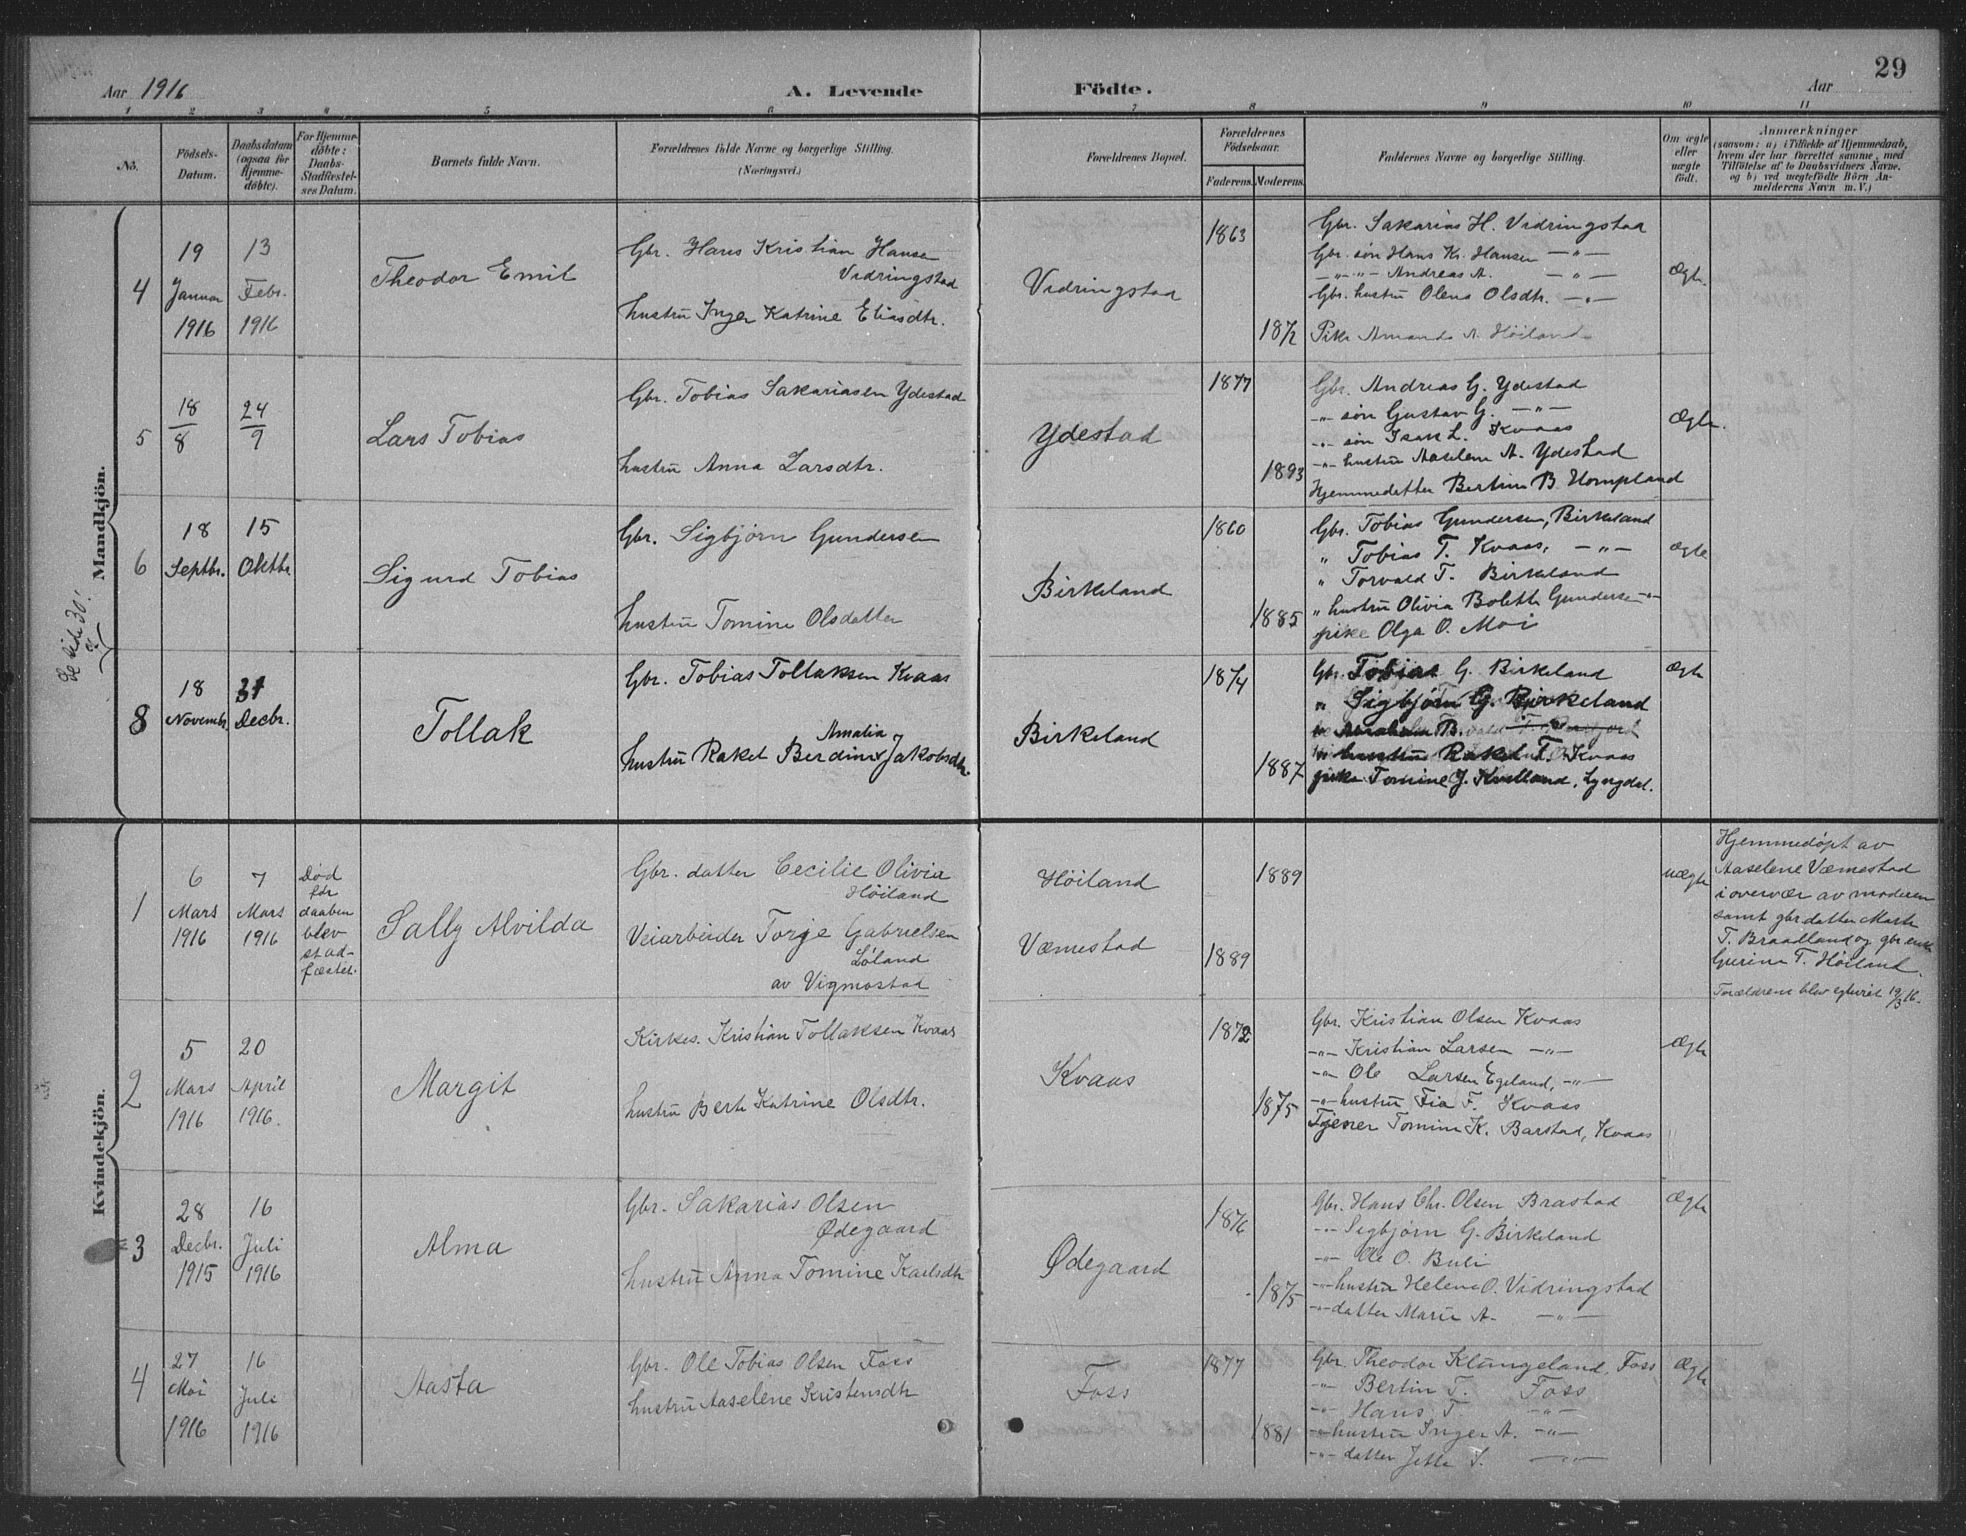 29
Aar 1916
A. Levende Födte.
Aar
1 2 3 4 5 6 7 8 9 10 11
No.
Födsels-Datum.
Daabsdatum (ogsaa for Hjemme-döbte).
For Hjemme-döbte: Daabs-Stadfæstel-ses Datum.
Barnets fulde Navn.
Forældrenes fulde Navne og borgerlige Stilling. (Næringsvei.)
Forældrenes Bopæl.
Forældrenes Födselsaar.
Faderens. Moderens.
Faddernes Navne og borgerlige Stilling.
Om ægte eller uægte födt.
Anmærkninger (saasom: a) i Tilfælde af Hjemmedaab, hvem der har forrettet samme, med Tilföielse af to Daabsvidners Navne, og b) ved uægtefödte Börn An-melderens Navn m. V.)
Mandkjön.
Se side 30!
4
19 Januar 1916
13 Febr. 1916
Theodor Emil
Gbr. Hans Kristian Hansen
Vidringstad
hustru Inger Katrine Eliasdtr.
Vidringstad
1863
1872
Gbr. Sakarias H. Vidringstad
Gbr. søn Hans Kr. Hansen -"-
-"- -"- Andreas A. -"-
Gbr. hustru Olena Olsdtr. -"-
Pike Amanda A. Høiland
Ægte
5
18/8
24/9
Lars Tobias
Gbr. Tobias Sakariasen Ydestad
hustru Anna Larsdtr.
Ydestad
1877
1893
Gbr. Andreas G. Ydestad
-"- søn Gustav G. -"-
-"- søn Isak L. Kvaas
-"- hustru Aaselene A. Ydestad
Hjemmedatter Bertine B. Hompland
Ægte.
6
18 Septbr.
15 Oktbr
Sigurd Tobias
Gbr. Sigbjørn Gundersen
hustru Tomine Olsdatter
Birkeland
1860
1885
Gbr. Tobias Gundersen, Birkeland
" Tobias T. Kvaas, -"-
" Torvald T. Birkeland
" hustru Olivia Bolette Gundersen -"-
pike Olga O. Moi
Ægte
8
18 Novembr.
31 Decbr.
Tollak
Gbr. Tobias Tollaksen Kvaas
Amalia
hustru Rakel Berdine Jakobsdtr.
Birkeland
1874
1887
Gbr. Tobias G. Birkeland
" Sigbjørn G. Birkeland
" Abraham B.
" hustru Rakel T. Kvaas
pike Tomine J. Kvelland, Lyngdal.
Ægte
Kvindekjön.
1
6 Mars 1916
7 Mars 1916
Død
før
daaben
blev
stad-
fæstet.
Sally Alvilda
Gbr. datter Cecilie Olivia
Høiland
Veiarbeider Torje Gabrielsen
Løland
av Vigmostad
Høiland
Væmestad
1889
1889
uægte
Hjemmedøpt av
Aaselene Væmestad
i overvær av moderen
samt gbr datter Marte
T. Braadland og gbr enke
Gurine T. Høiland.
Forældrene blev egteviet 19/3 16.
2
5 Mars 1916
20 April 1916.
Margit
Kirkes. Kristian Tollaksen Kvaas
hustru Berte Katrine Olsdtr.
Kvaas
1872
1875
Gbr. Kristian Olsen Kvaas
-"- Kristian Larsen -"-
-"- Ole Larsen Egeland, -"-
-"- hustru Fia F. Kvaas
Tjener Tomine K. Barstad, Kvaas
Ægte
3
28 Decbr. 1915
16 Juli 1916
Alma
Gbr. Sakarias Olsen
Ødegaard
hustru Anna Tomine Karlsdtr
Ødegaard
1876
1875
Gbr. Hans Chr. Olsen Brastad
-"- Sigbjørn G. Birkeland
-"- Ole O. Buli
-"- hustru Helene O. Vidringstad
-"- datter Marie A. -"-
Ægte
4
27 Mai 1916
16 Juli 1916
Aasta
Gbr. Ole Tobias Olsen Foss
hustru Aaselene Kristensdtr
Foss
1877
1881
Gbr. Theodor Klungeland, Foss
-"- Bertin T. Foss
-"- Hans T. -"-
-"- hustru Inger A. -"-
-"- datter Jette S. -"-
Ægte